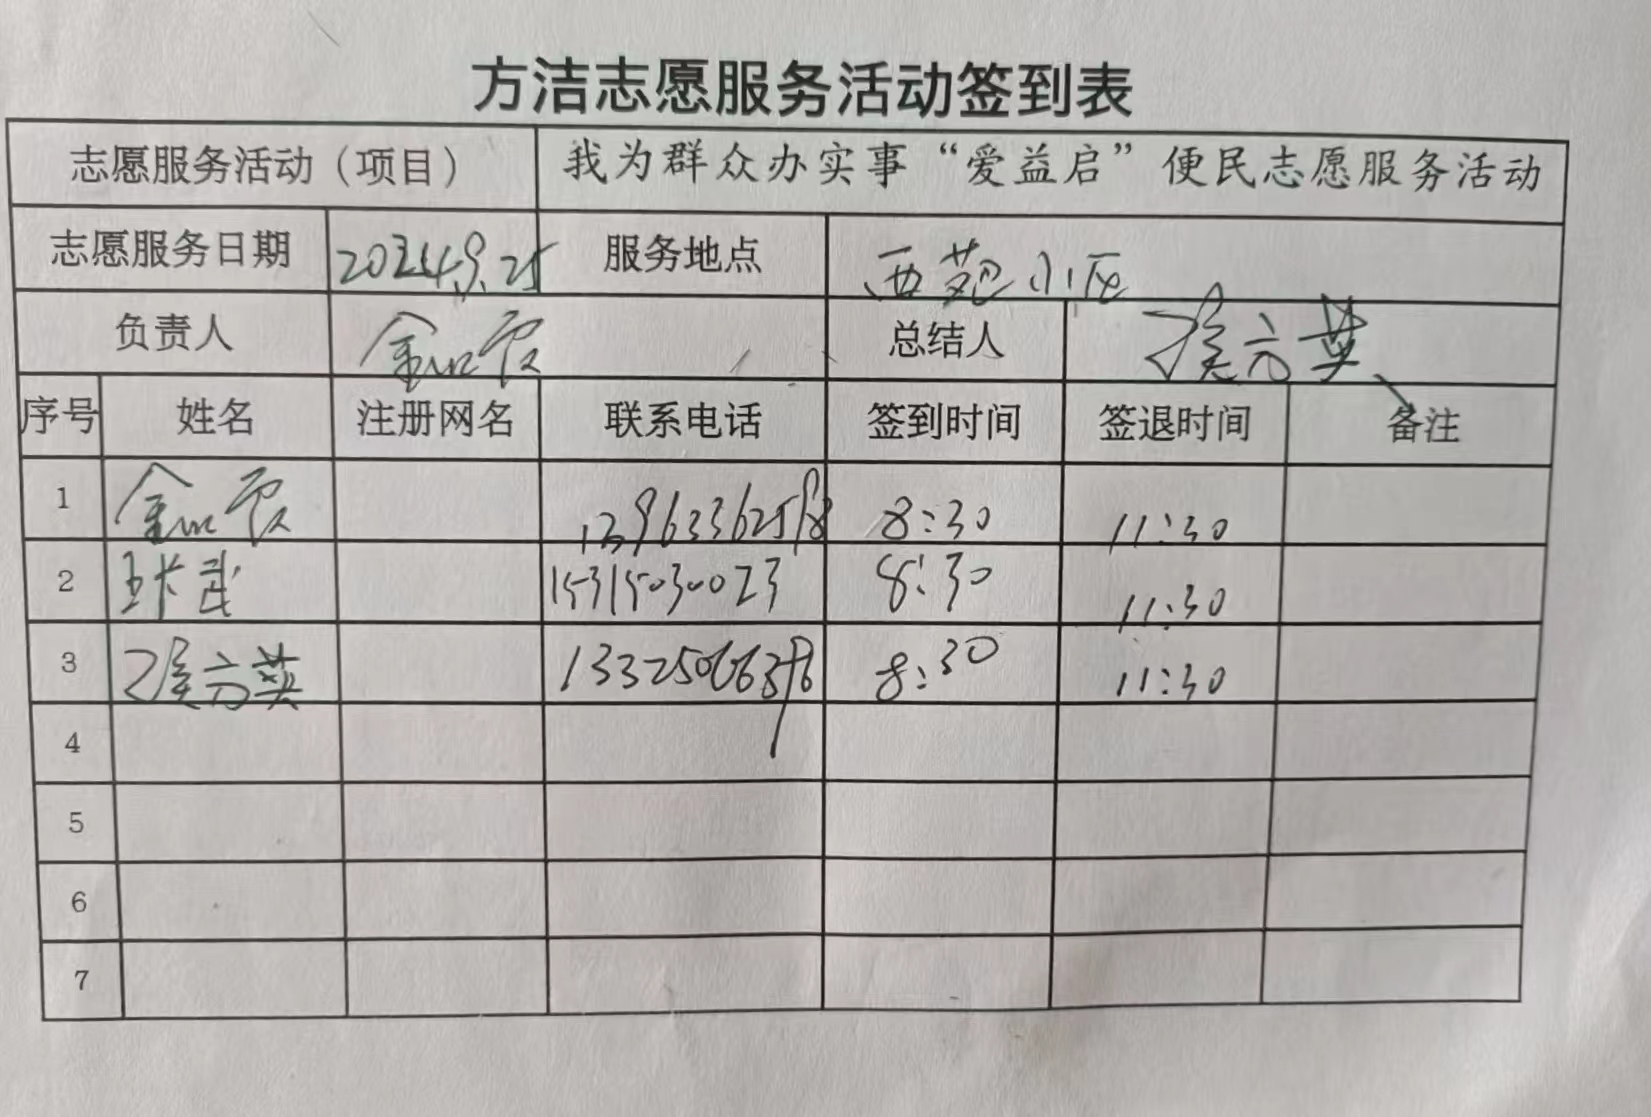 方洁志愿服务活动签到表
志愿服务活动（项目） 我为群众办实事“爱益启”便民志愿服务活动
志愿服务日期 2024.9.25 服务地点 西苑小区
负责人 总结人
序号 姓名 注册网名 联系电话 签到时间 签退时间 备注
1 8:30 11:30
2 15315030023 8:30 11:30
3 8:30 11:30
4
5
6
7